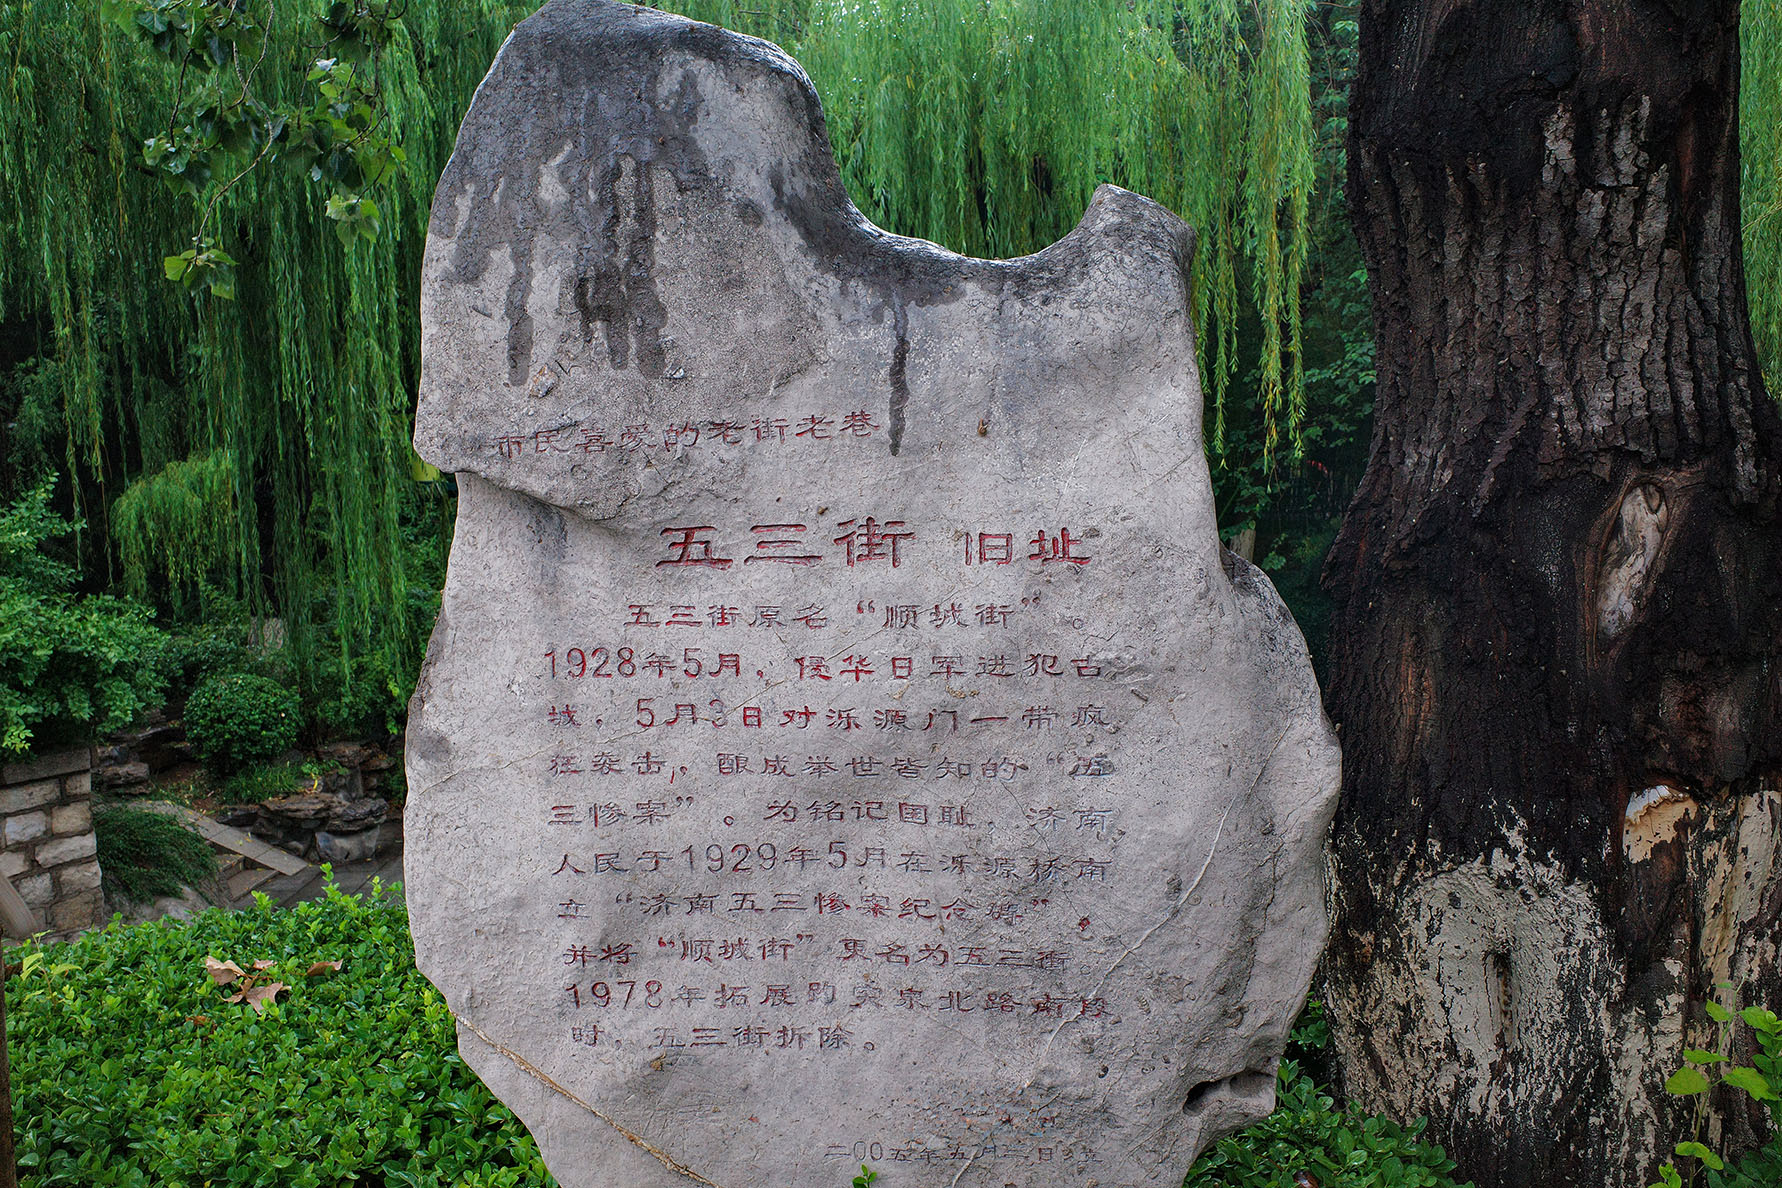 市民喜爱的老街老巷
五三街 旧址
五三街原名“顺城街”。
1928年5月，侵华日军进犯古
城，5月3日对泺源门一带疯
狂袭击，酿成举世皆知的“五
三惨案”。为铭记国耻，济南
人民于1929年5月在泺源桥南
立“济南五三惨案纪念碑”，
并将“顺城街”更名为五三街。
1978年拓展趵突泉北路南段
时，五三街拆除。
二00五年五月三日立